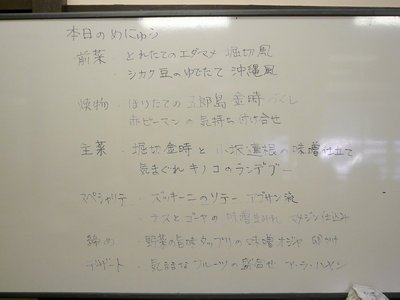 本日のめにゅう
前菜・とれたてのエダマメ 堀切風
・シカク豆のゆでたて 沖縄風
焼物・ほりたての五郎島金時づくし
赤ピーマンの気持ち付け合せ
主菜・堀切金時と小坂蓮根の味噌仕立て
気まぐれキノコのランデブー
スペシャリテ・ズッキーニのソテー
・ナスとゴーヤの味噌
締め 野菜の旨味タップリの味噌オジヤ 卵かけ
デザート・気まぐれフルーツの盛合せ